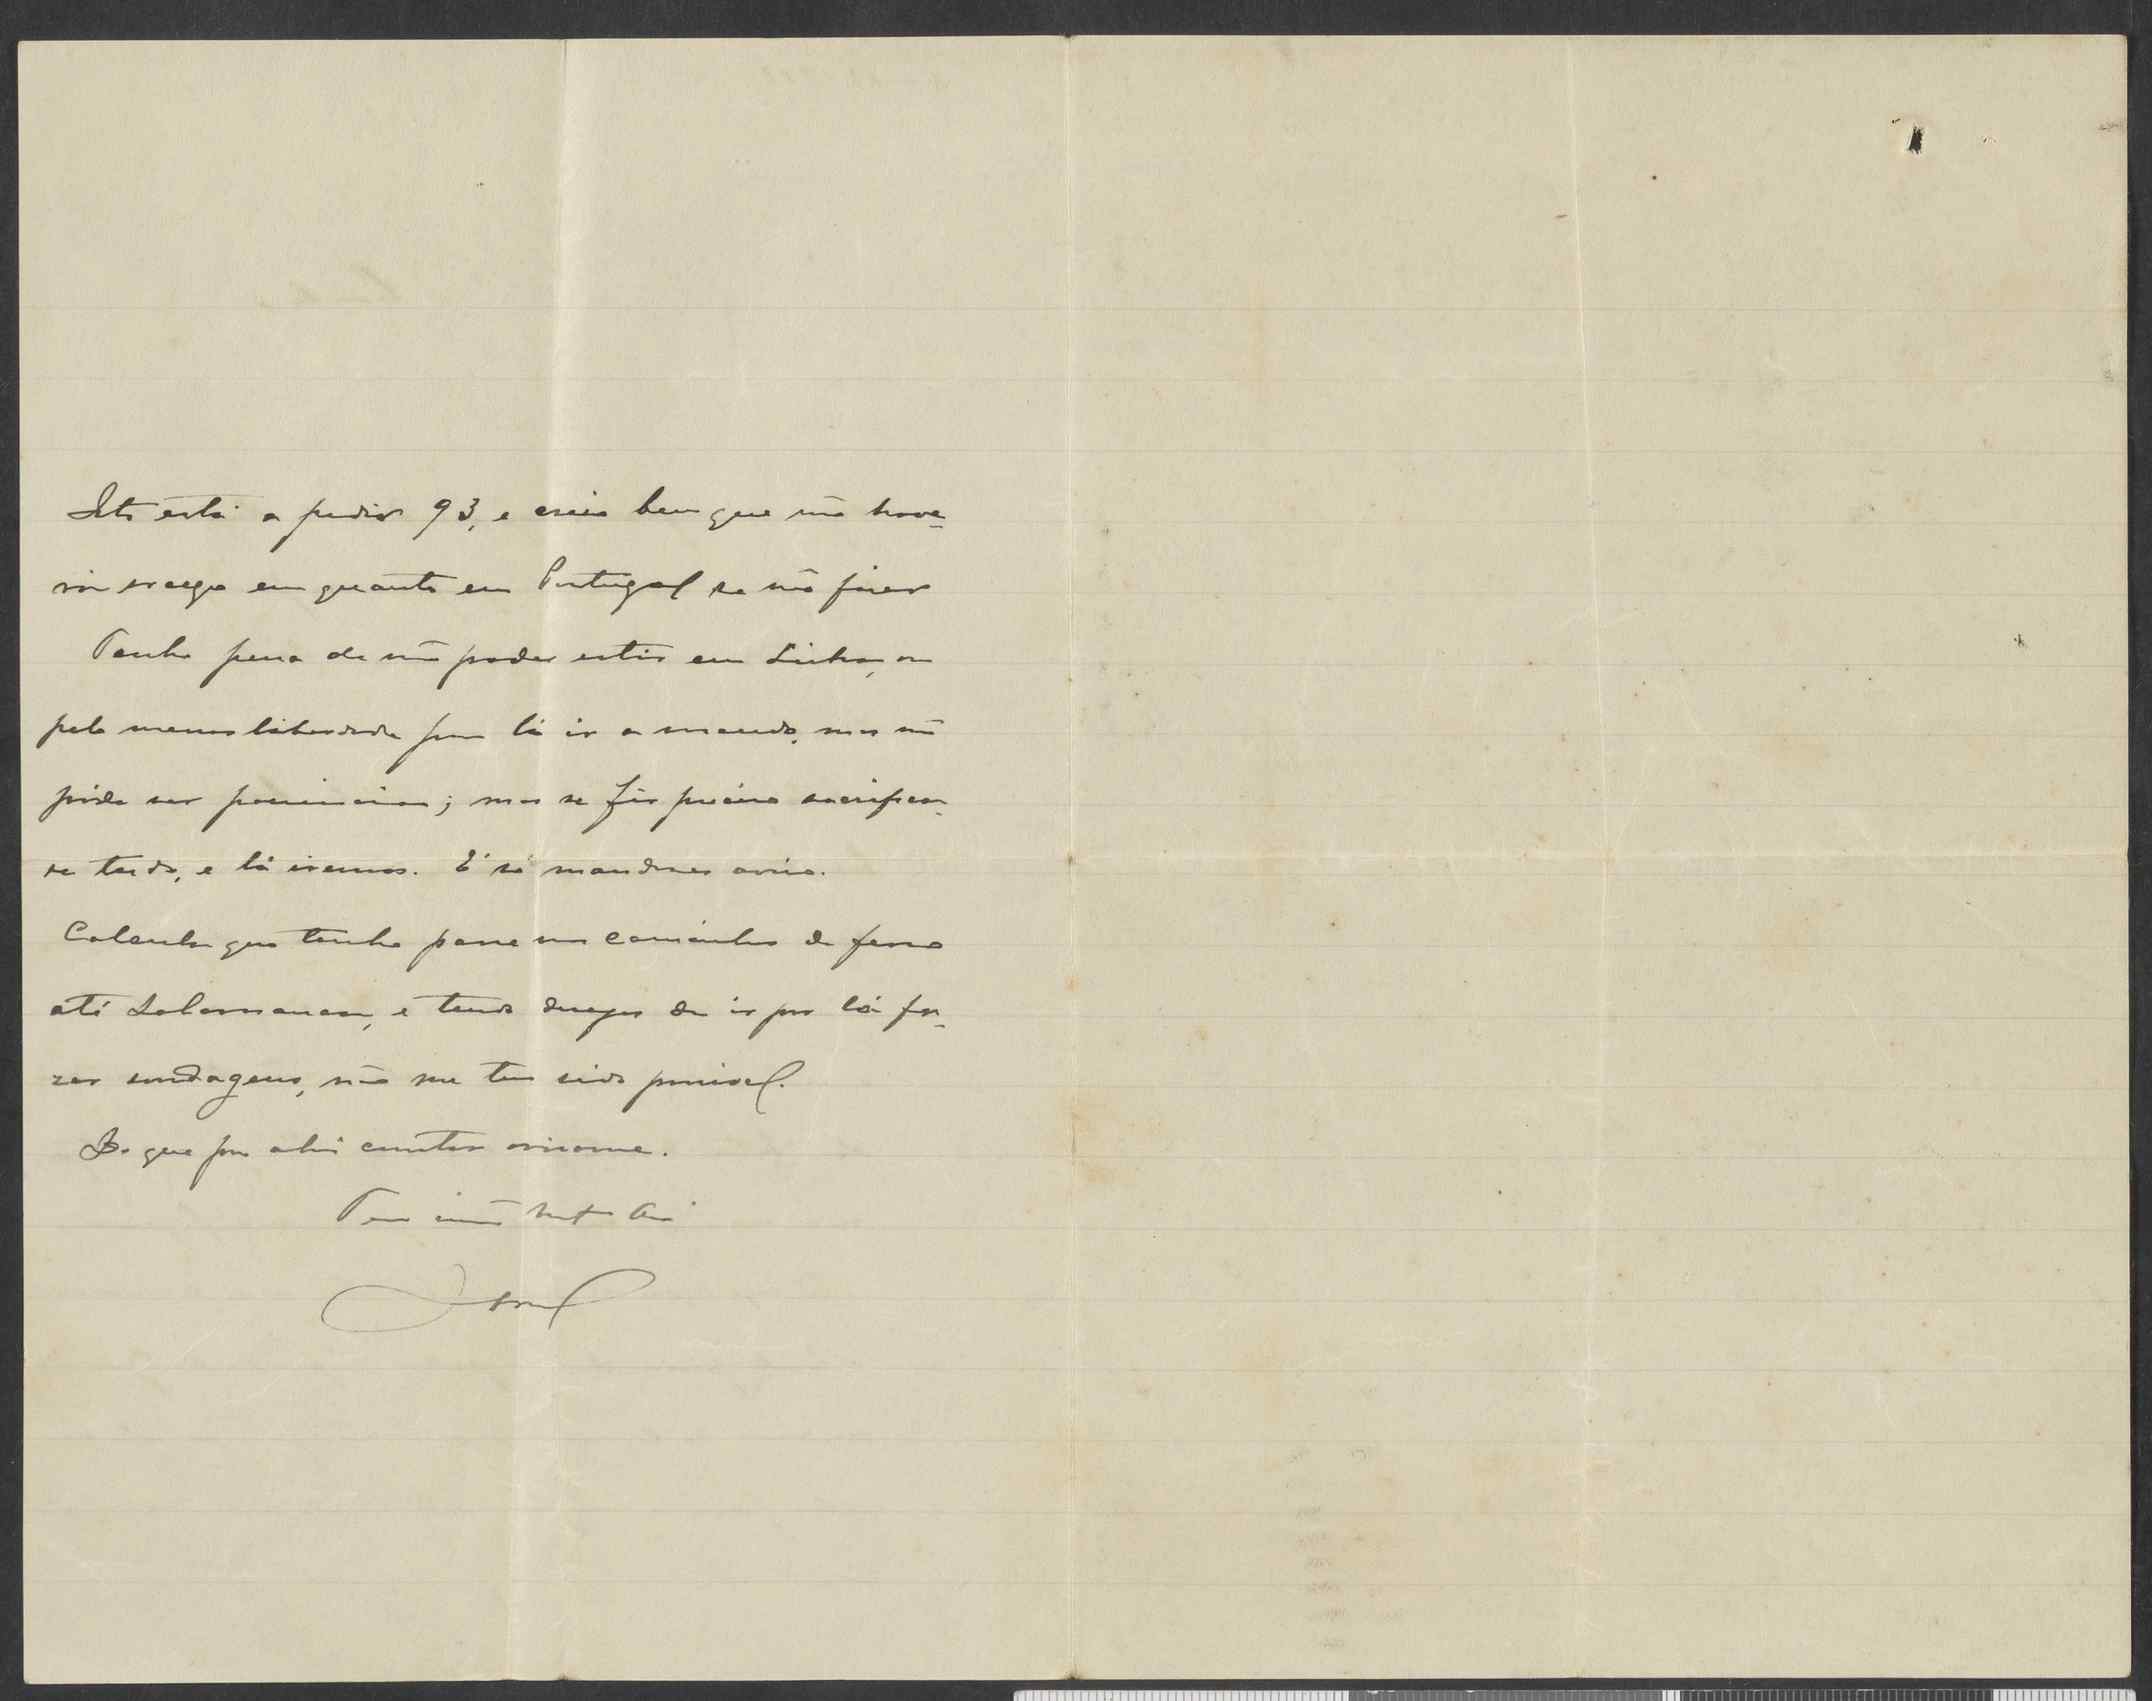 Isto está a pedir 93, e creio bem que não have-
rá socego em quanto em Portugal se não fizer
Tenho pena de não poder estar em Lisboa, ou
pelo menos liberdade para lá ir a miudo, mas não
póde ser por; mas se fôr preciso sacrifica-
se tudo, e lá iremos. É só mandares aviso.
Calcula que tenho passe nos caminhos de ferro
até Salamanca, e tendo desejos de ir por lá fa-
zer sondagens, não me tem sido possivel.
Do que por ahi constar avisa-me.
Teu irmão mto amo